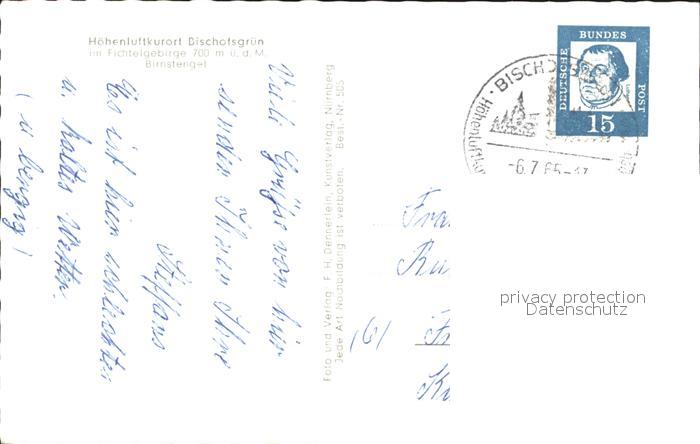 Höhenluftkurort Bischofsgrün
im Fichtelgebirge 700 m ü. d. M.
Birnstengel
Viele Grüsse von hier
senden Ihnen Ihre
Es ist hier schlechtes
u. kaltes Wetter.
Foto und Verlag: F. H. Dennerlein, Kunstverlag, Nürnberg
Jede Art Nachbildung ist verboten. Best.-Nr. 505
DEUTSCHE BUNDES POST
15
BISCHO
Höhenluftku
-6.7.65-17
(6)
privacy protection
Datenschutz